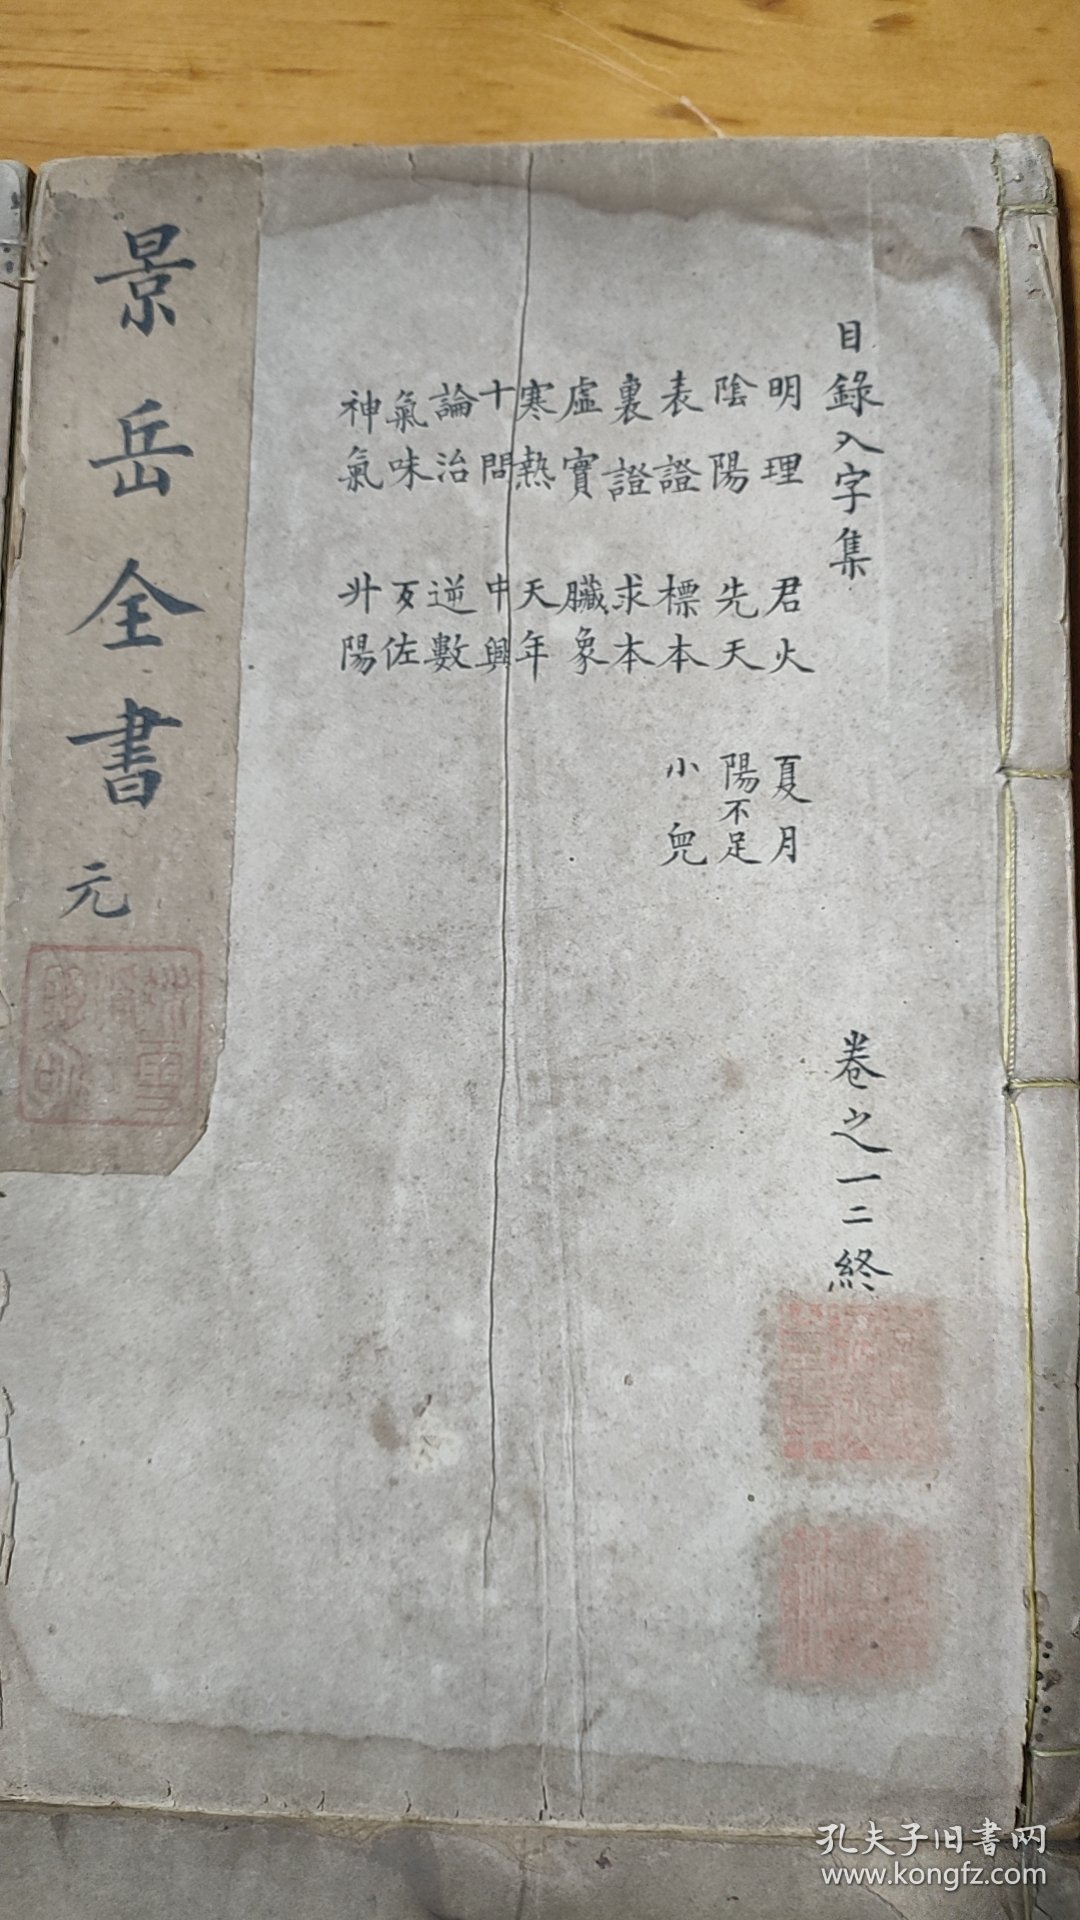 目錄入字集
明理 君火 夏月
陰陽 先天 陽不足
表證 標本 小兒
裏證 求本
虛實 臟象
寒熱 天年
十問 中興
論治 逆數
氣味 反佐
神氣 升陽
卷之一二終
景岳全書 元
孔夫子旧書网
www.kongfz.com